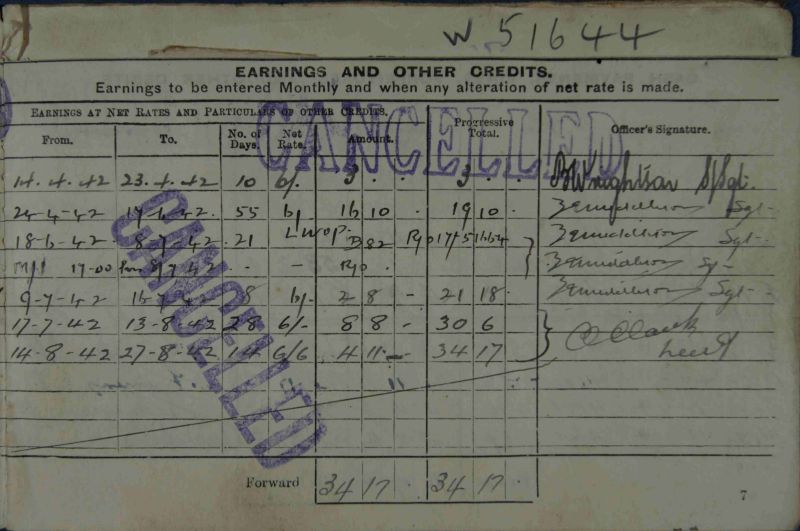 W 51644
EARNINGS AND OTHER CREDITS.
Earnings to be entered Monthly and when any alteration of net rate is made.
EARNINGS AT NET RATES AND PARTICULARS OF OTHER CREDITS.
From. To. No. of Days. Net Rate. Amount. Progressive Total. Officer's Signature.
CANCELLED
CANCELLED
14.4.42 23.4.42 10 6/. 3 . . 3 . . S/Sgt.
24-4-42 17-6-42. 55 6/. 16 10 . 19 10 . Sgt-
18-6-42 8-7-42 21 LWOP. Sgt-
17-00 8 7 42 - -
9-7-42 16 7 42 8 6/- 2 8 - 21 18 . Sgt-
17-7-42 13-8-42 28 6/- 8 8 - 30 6
14-8-42 27-8-42 14 6/6 4 11 - 34 17 Lieut
Forward 34 17 34 17
7